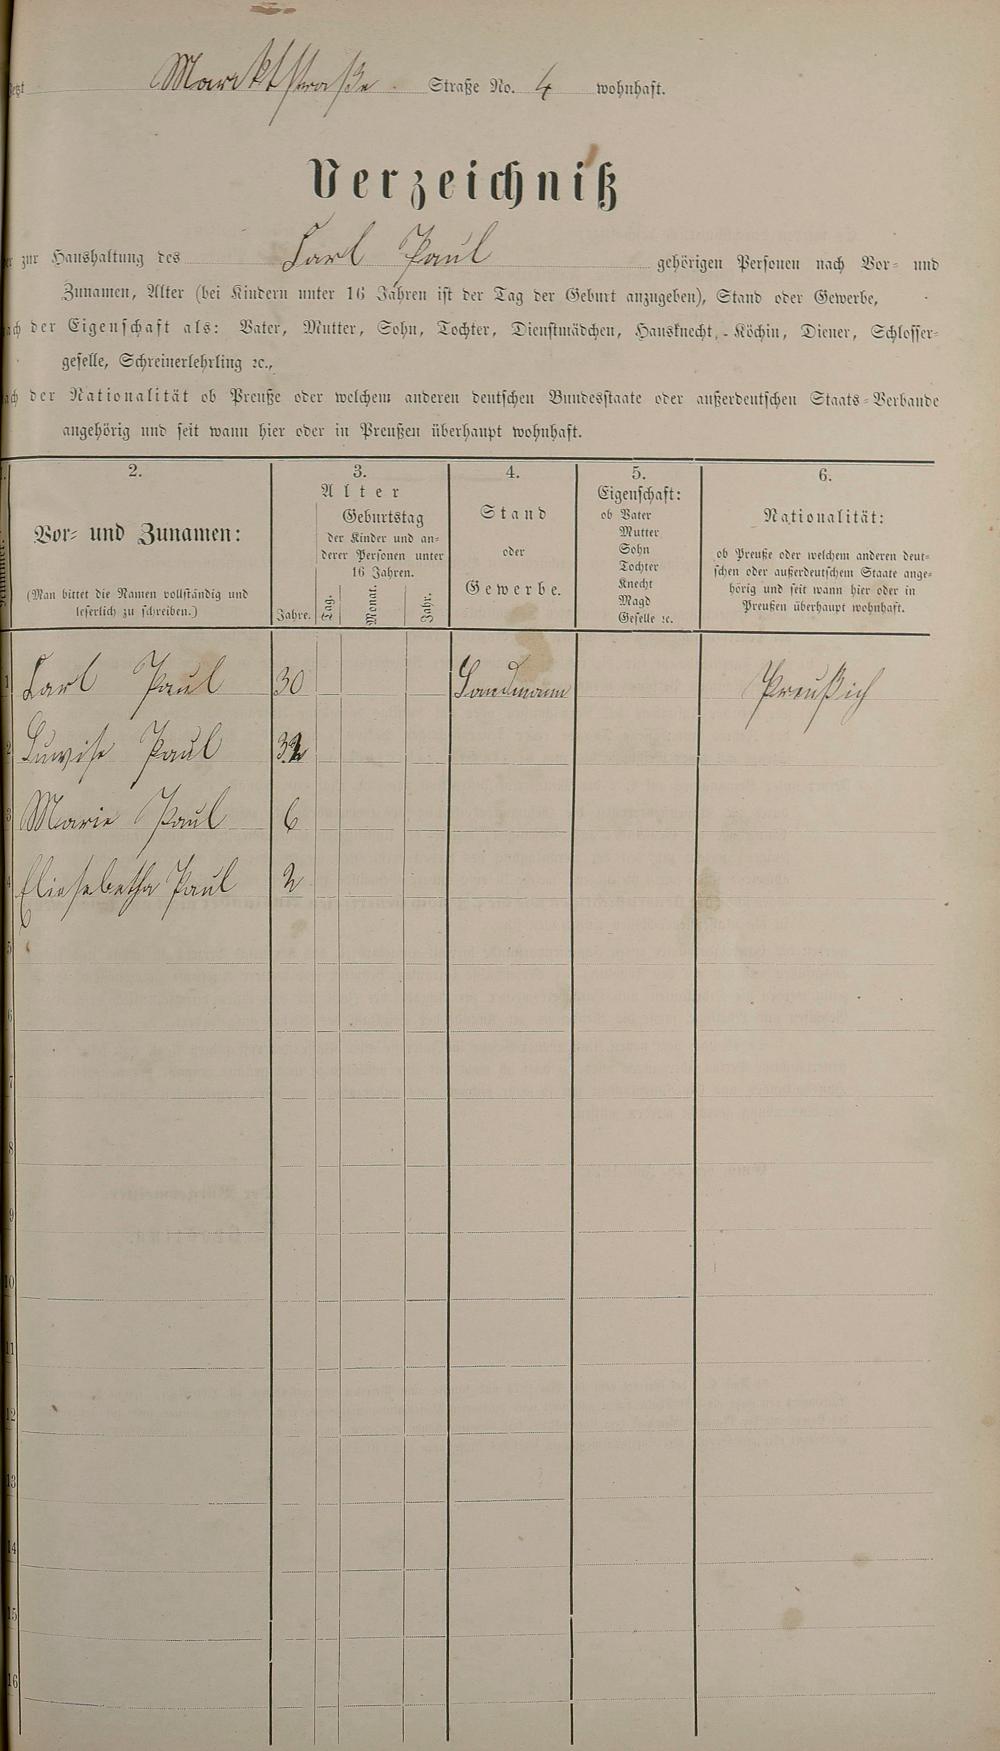 Marcktstraße Straße No. 4 wohnhaft.
Verzeichniß
zur Haushaltung des Carl Paul gehörigen Personen nach Vor- und
Zunamen, Alter (bei Kindern unter 16 Jahren ist der Tag der Geburt anzugeben), Stand oder Gewerbe,
der Eigenschaft als: Vater, Mutter, Sohn, Tochter, Dienstmädchen, Hausknecht, Köchin, Diener, Schlosser-
geselle, Schreinerlehrling ꝛc.,
der Nationalität ob Preuße oder welchem anderen deutschen Bundesstaate oder außerdeutschen Staats-Verbande
angehörig und seit wann hier oder in Preußen überhaupt wohnhaft.
2.
Vor- und Zunamen:
(Man bittet die Namen vollständig und
leserlich zu schreiben.)
3.
Alter
Geburtstag
der Kinder und an-
derer Personen unter
16 Jahren.
Jahre. Tag. Monat. Jahr.
4.
Stand
oder
Gewerbe.
5.
Eigenschaft:
ob Vater
Mutter
Sohn
Tochter
Knecht
Magd
Geselle ꝛc.
6.
Nationalität:
ob Preuße oder welchem anderen deut-
schen oder außerdeutschem Staate ange-
hörig und seit wann hier oder in
Preußen überhaupt wohnhaft.
1 Carl Paul 30 Landmann Preußich
2 Luwise Paul 32
3 Marie Paul 6
4 Eliesebetha Paul 2
5
6
7
8
9
10
11
12
13
14
15
16